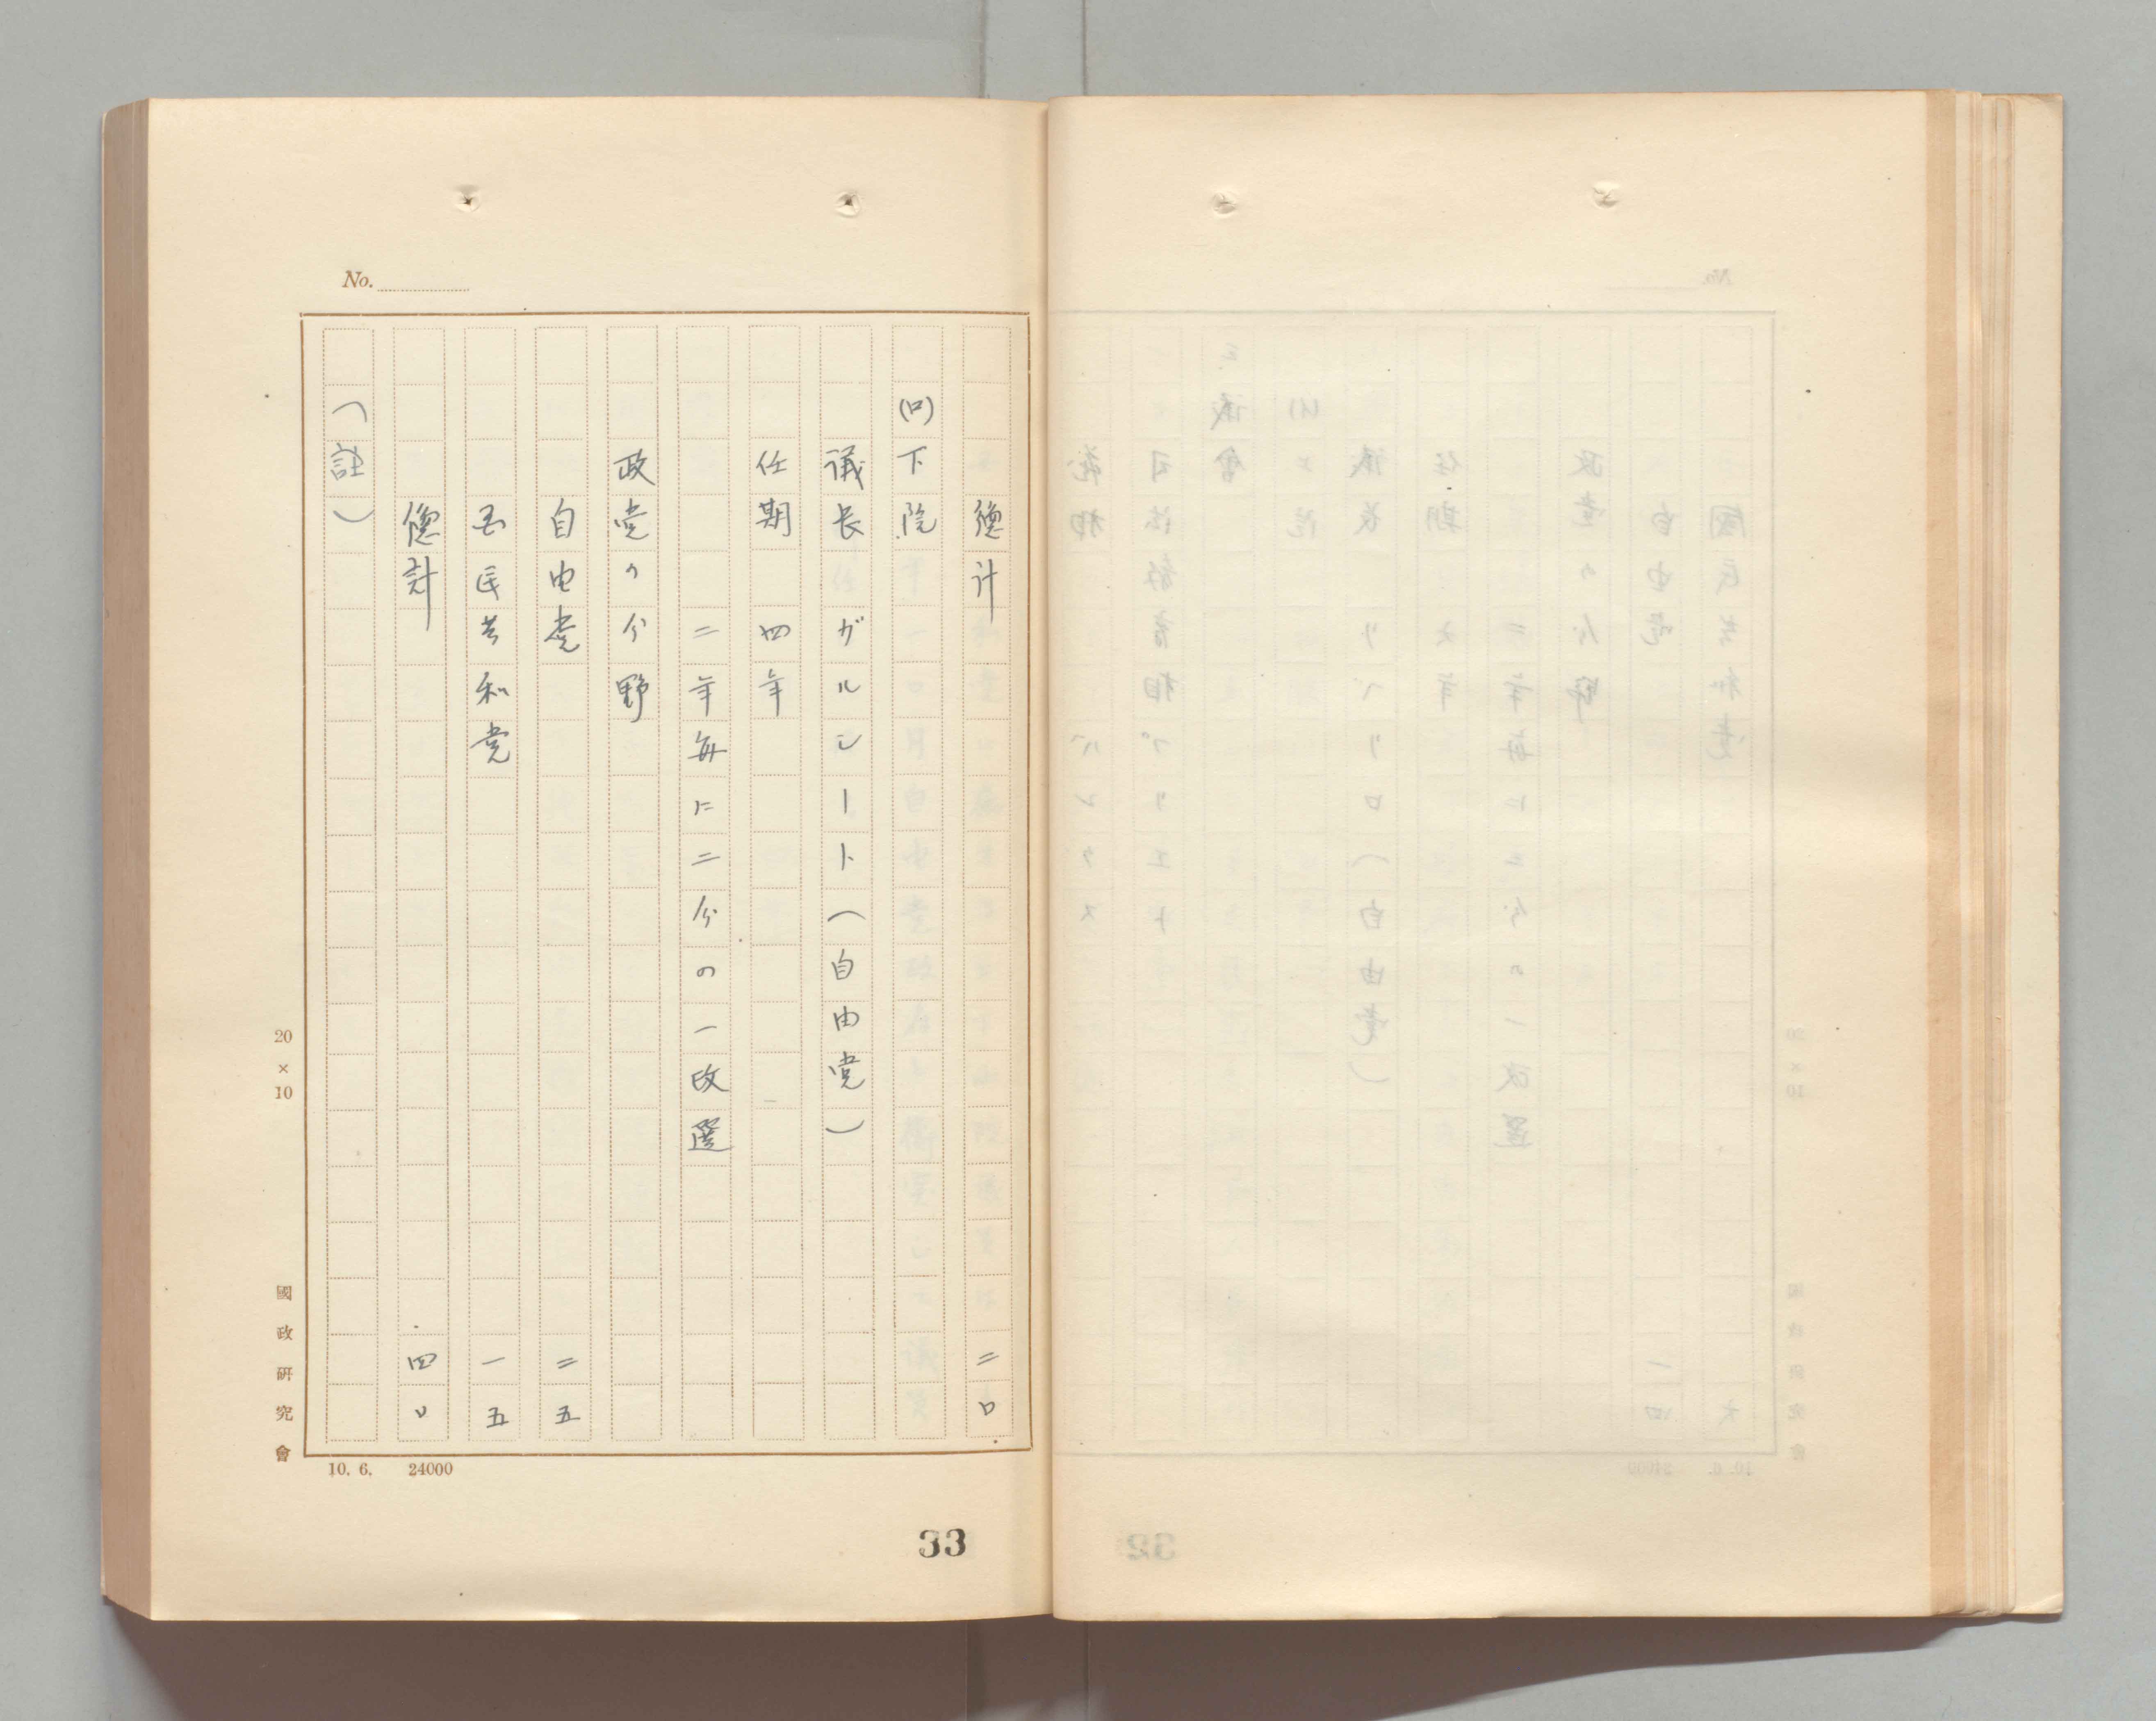 No.
總計 二〇
(ロ)下院
議長 ガルシート(自由党)
任期 四年
二年毎に二分の一改選
政党の分野
自由党 二五
国民共和党 一五
總計 四〇
(註)
20×10
國政研究會
10. 6. 24000
33